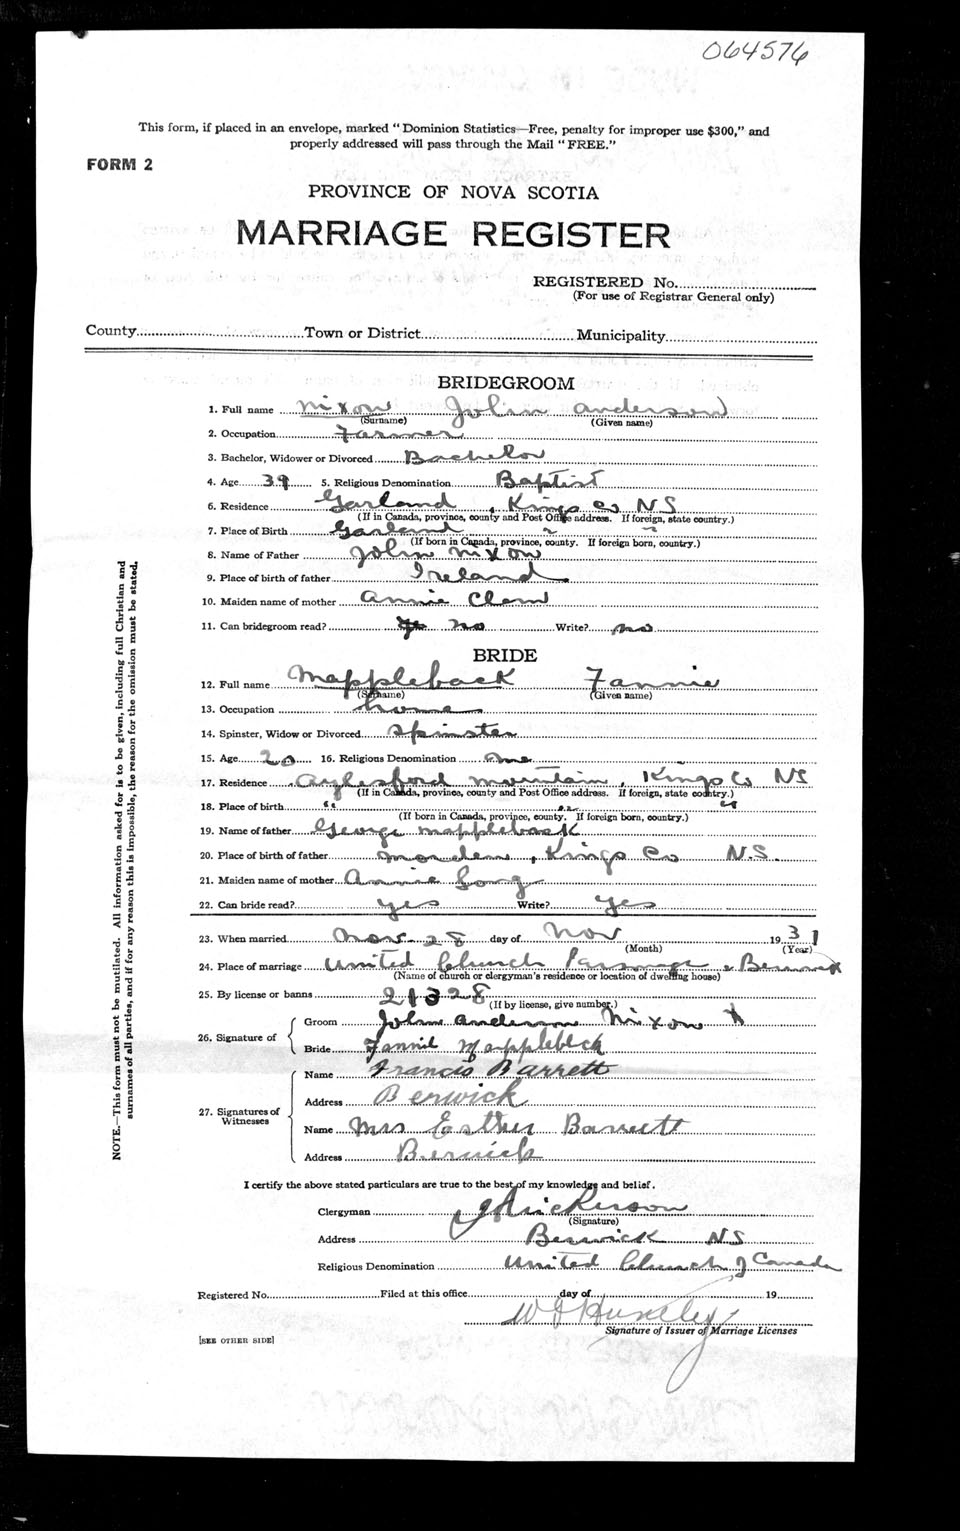 064576
This form, if placed in an envelope, marked "Dominion Statistics—Free, penalty for improper use $300," and
properly addressed will pass through the Mail "FREE."
FORM 2
PROVINCE OF NOVA SCOTIA
MARRIAGE REGISTER
REGISTERED No.
(For use of Registrar General only)
County Town or District Municipality
BRIDEGROOM
1. Full name Nixon John Anderson
(Surname) (Given name)
2. Occupation Farmer
3. Bachelor, Widower or Divorced Bachelor
4. Age 39 5. Religious Denomination Baptist
6. Residence Garland, Kings Co NS
(If in Canada, province, county and Post Office address. If foreign, state country.)
7. Place of Birth Garland " "
(If born in Canada, province, county. If foreign born, country.)
8. Name of Father John Nixon
9. Place of birth of father Ireland
10. Maiden name of mother Annie
11. Can bridegroom read? no Write? no
BRIDE
12. Full name Mappleback Fannie
(Surname) (Given name)
13. Occupation home
14. Spinster, Widow or Divorced Spinster
15. Age 20 16. Religious Denomination
17. Residence Aylesford Mountain, Kings Co NS
(If in Canada, province, county and Post Office address. If foreign, state country.)
18. Place of birth " " "
(If born in Canada, province, county. If foreign born, country.)
19. Name of father George Mappleback
20. Place of birth of father Morden, Kings Co N.S.
21. Maiden name of mother Annie Long
22. Can bride read? yes Write? yes
23. When married Nov 28 day of Nov 1931
(Month) (Year)
24. Place of marriage United Church Parsonage Berwick
(Name of church or clergyman's residence or location of dwelling house)
25. By license or banns 21328
(If by license, give number.)
26. Signature of
Groom John Anderson Nixon
Bride Fannie Mapplebeck
27. Signatures of Witnesses
Name Francis Barrett
Address Berwick
Name Mrs Esther Barrett
Address Berwick
I certify the above stated particulars are true to the best of my knowledge and belief.
Clergyman
(Signature)
Address Berwick NS
Religious Denomination United Church of Canada
Registered No. Filed at this office day of 19
W J Huntley
Signature of Issuer of Marriage Licenses
[SEE OTHER SIDE]
NOTE.—This form must not be mutilated. All information asked for is to be given, including full Christian and
surnames of all parties, and if for any reason this is impossible, the reason for the omission must be stated.